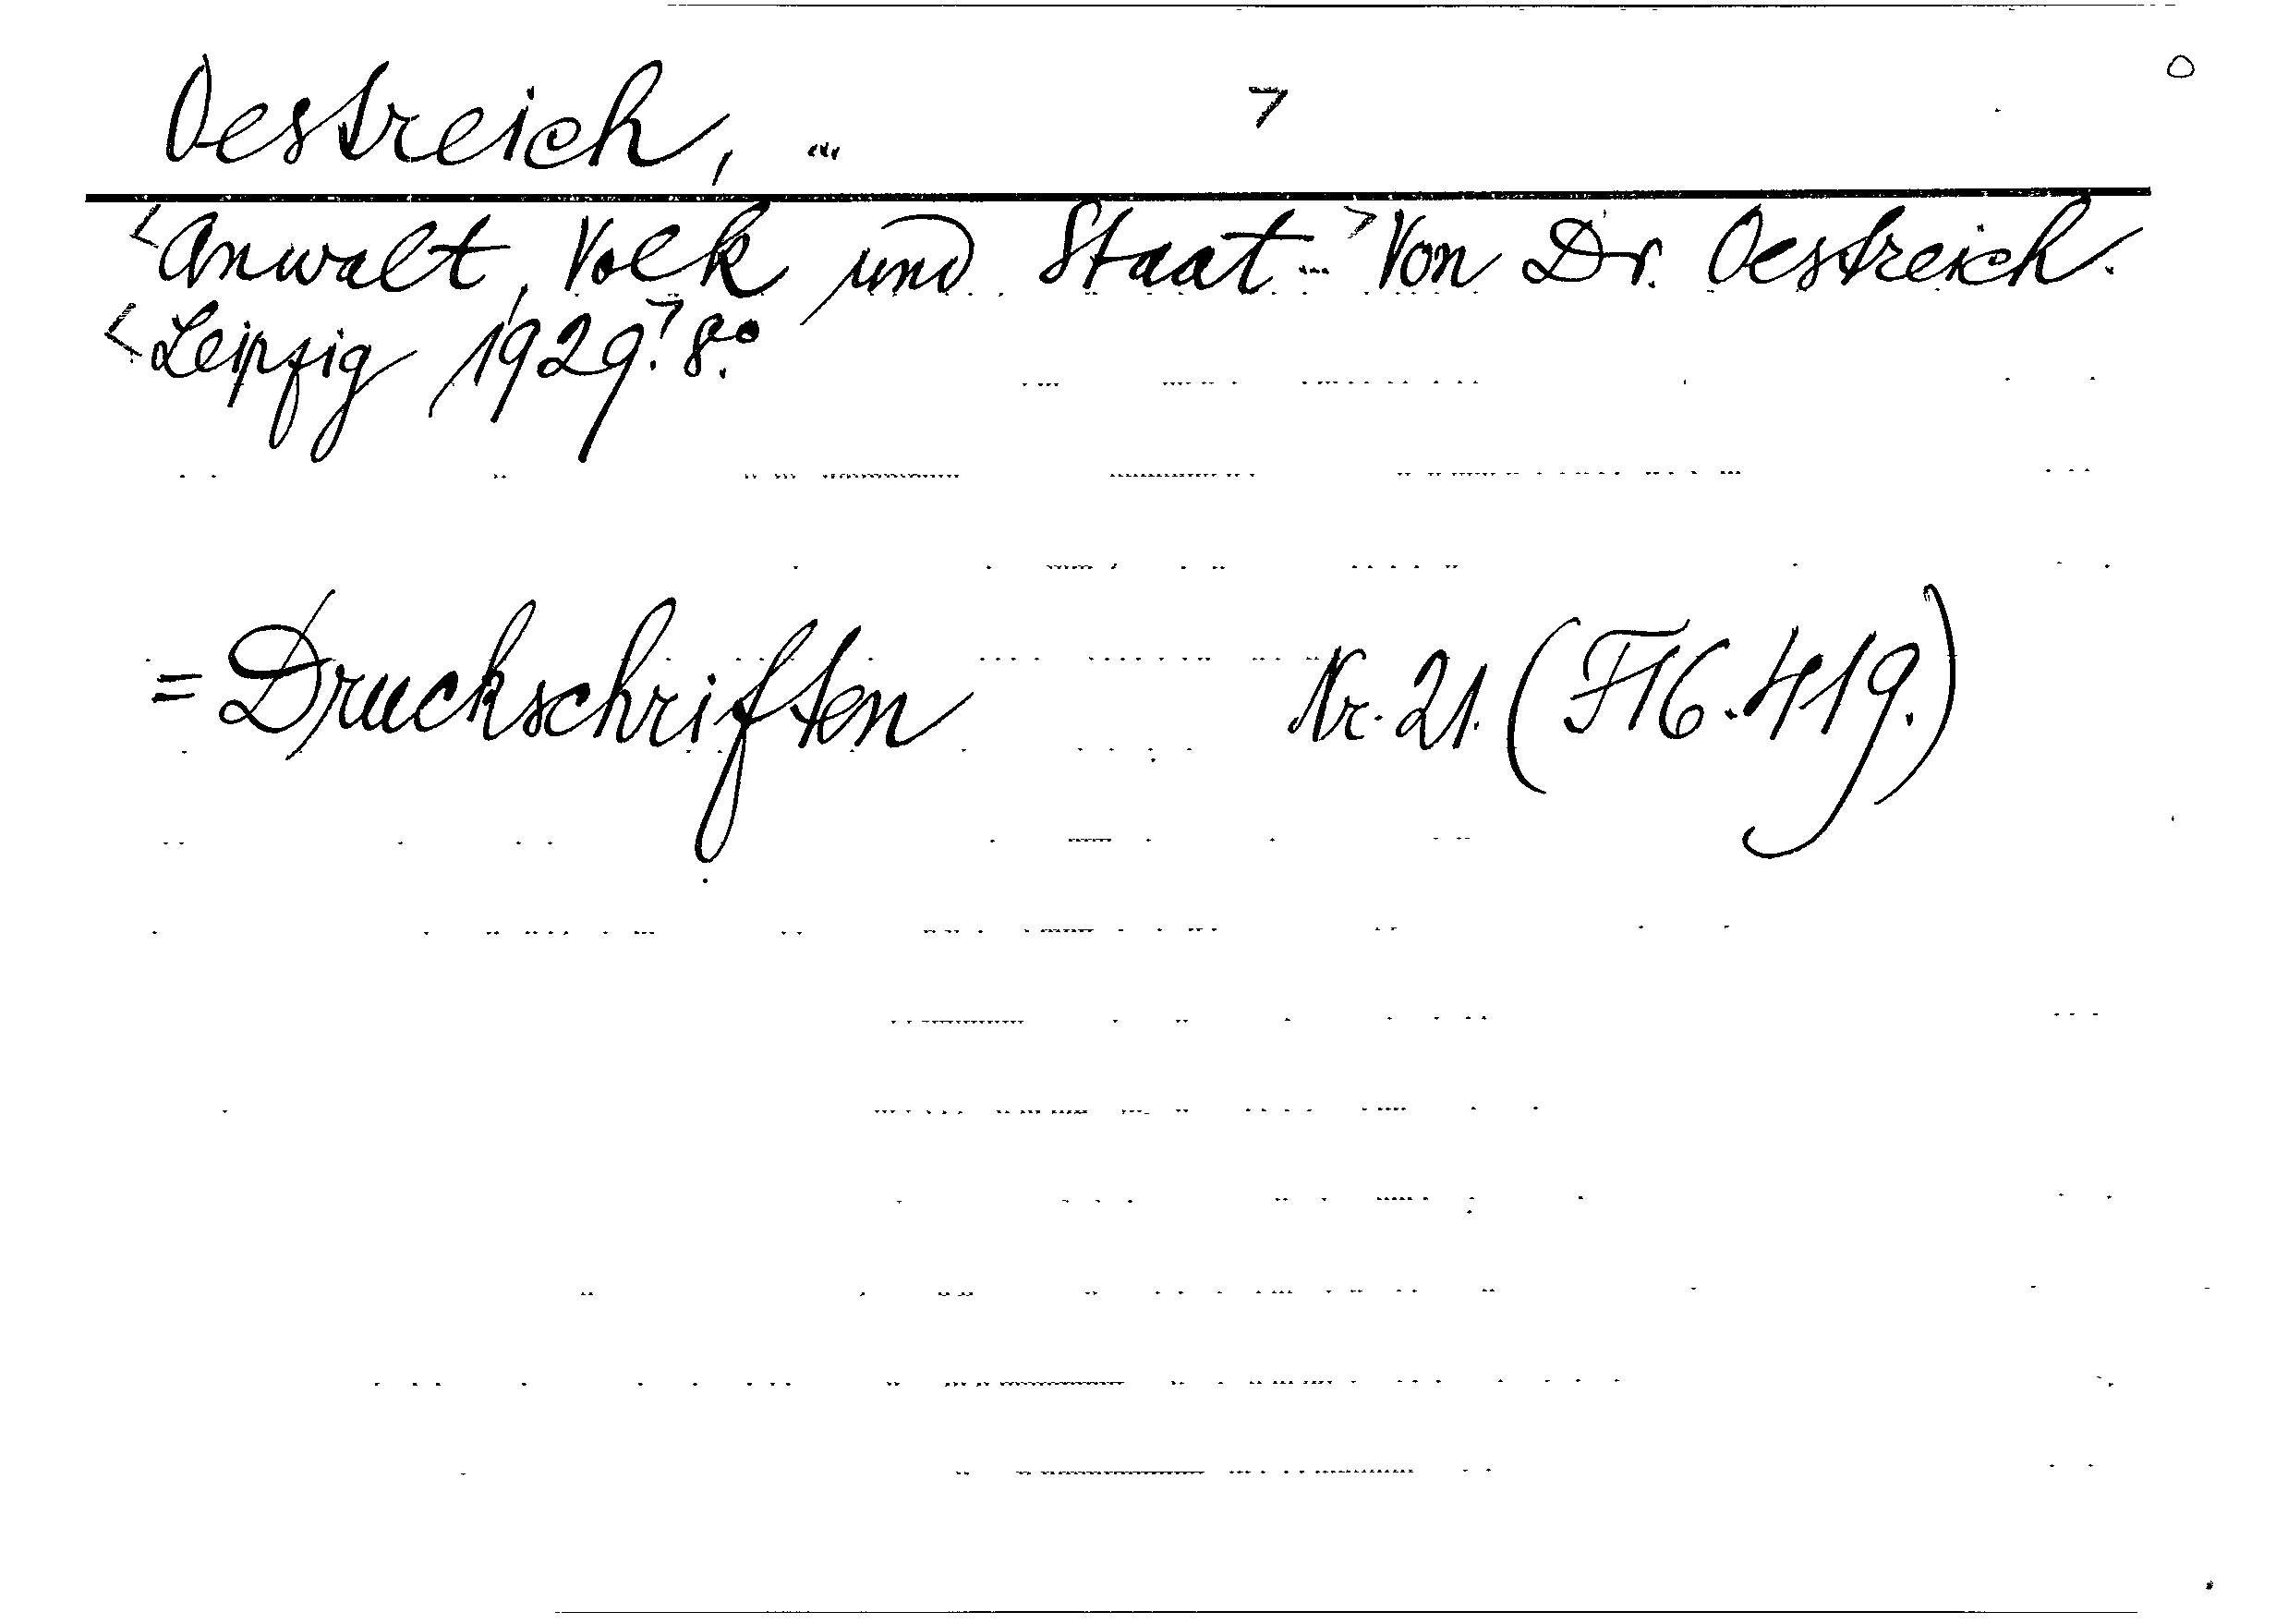 Oestreich, ...
<Anwalt, Volk und Staat...> Von Dr. Oestreich.
<Leipzig 1929.> 8.°
= Druckschriften Nr. 21. (F16.419.)